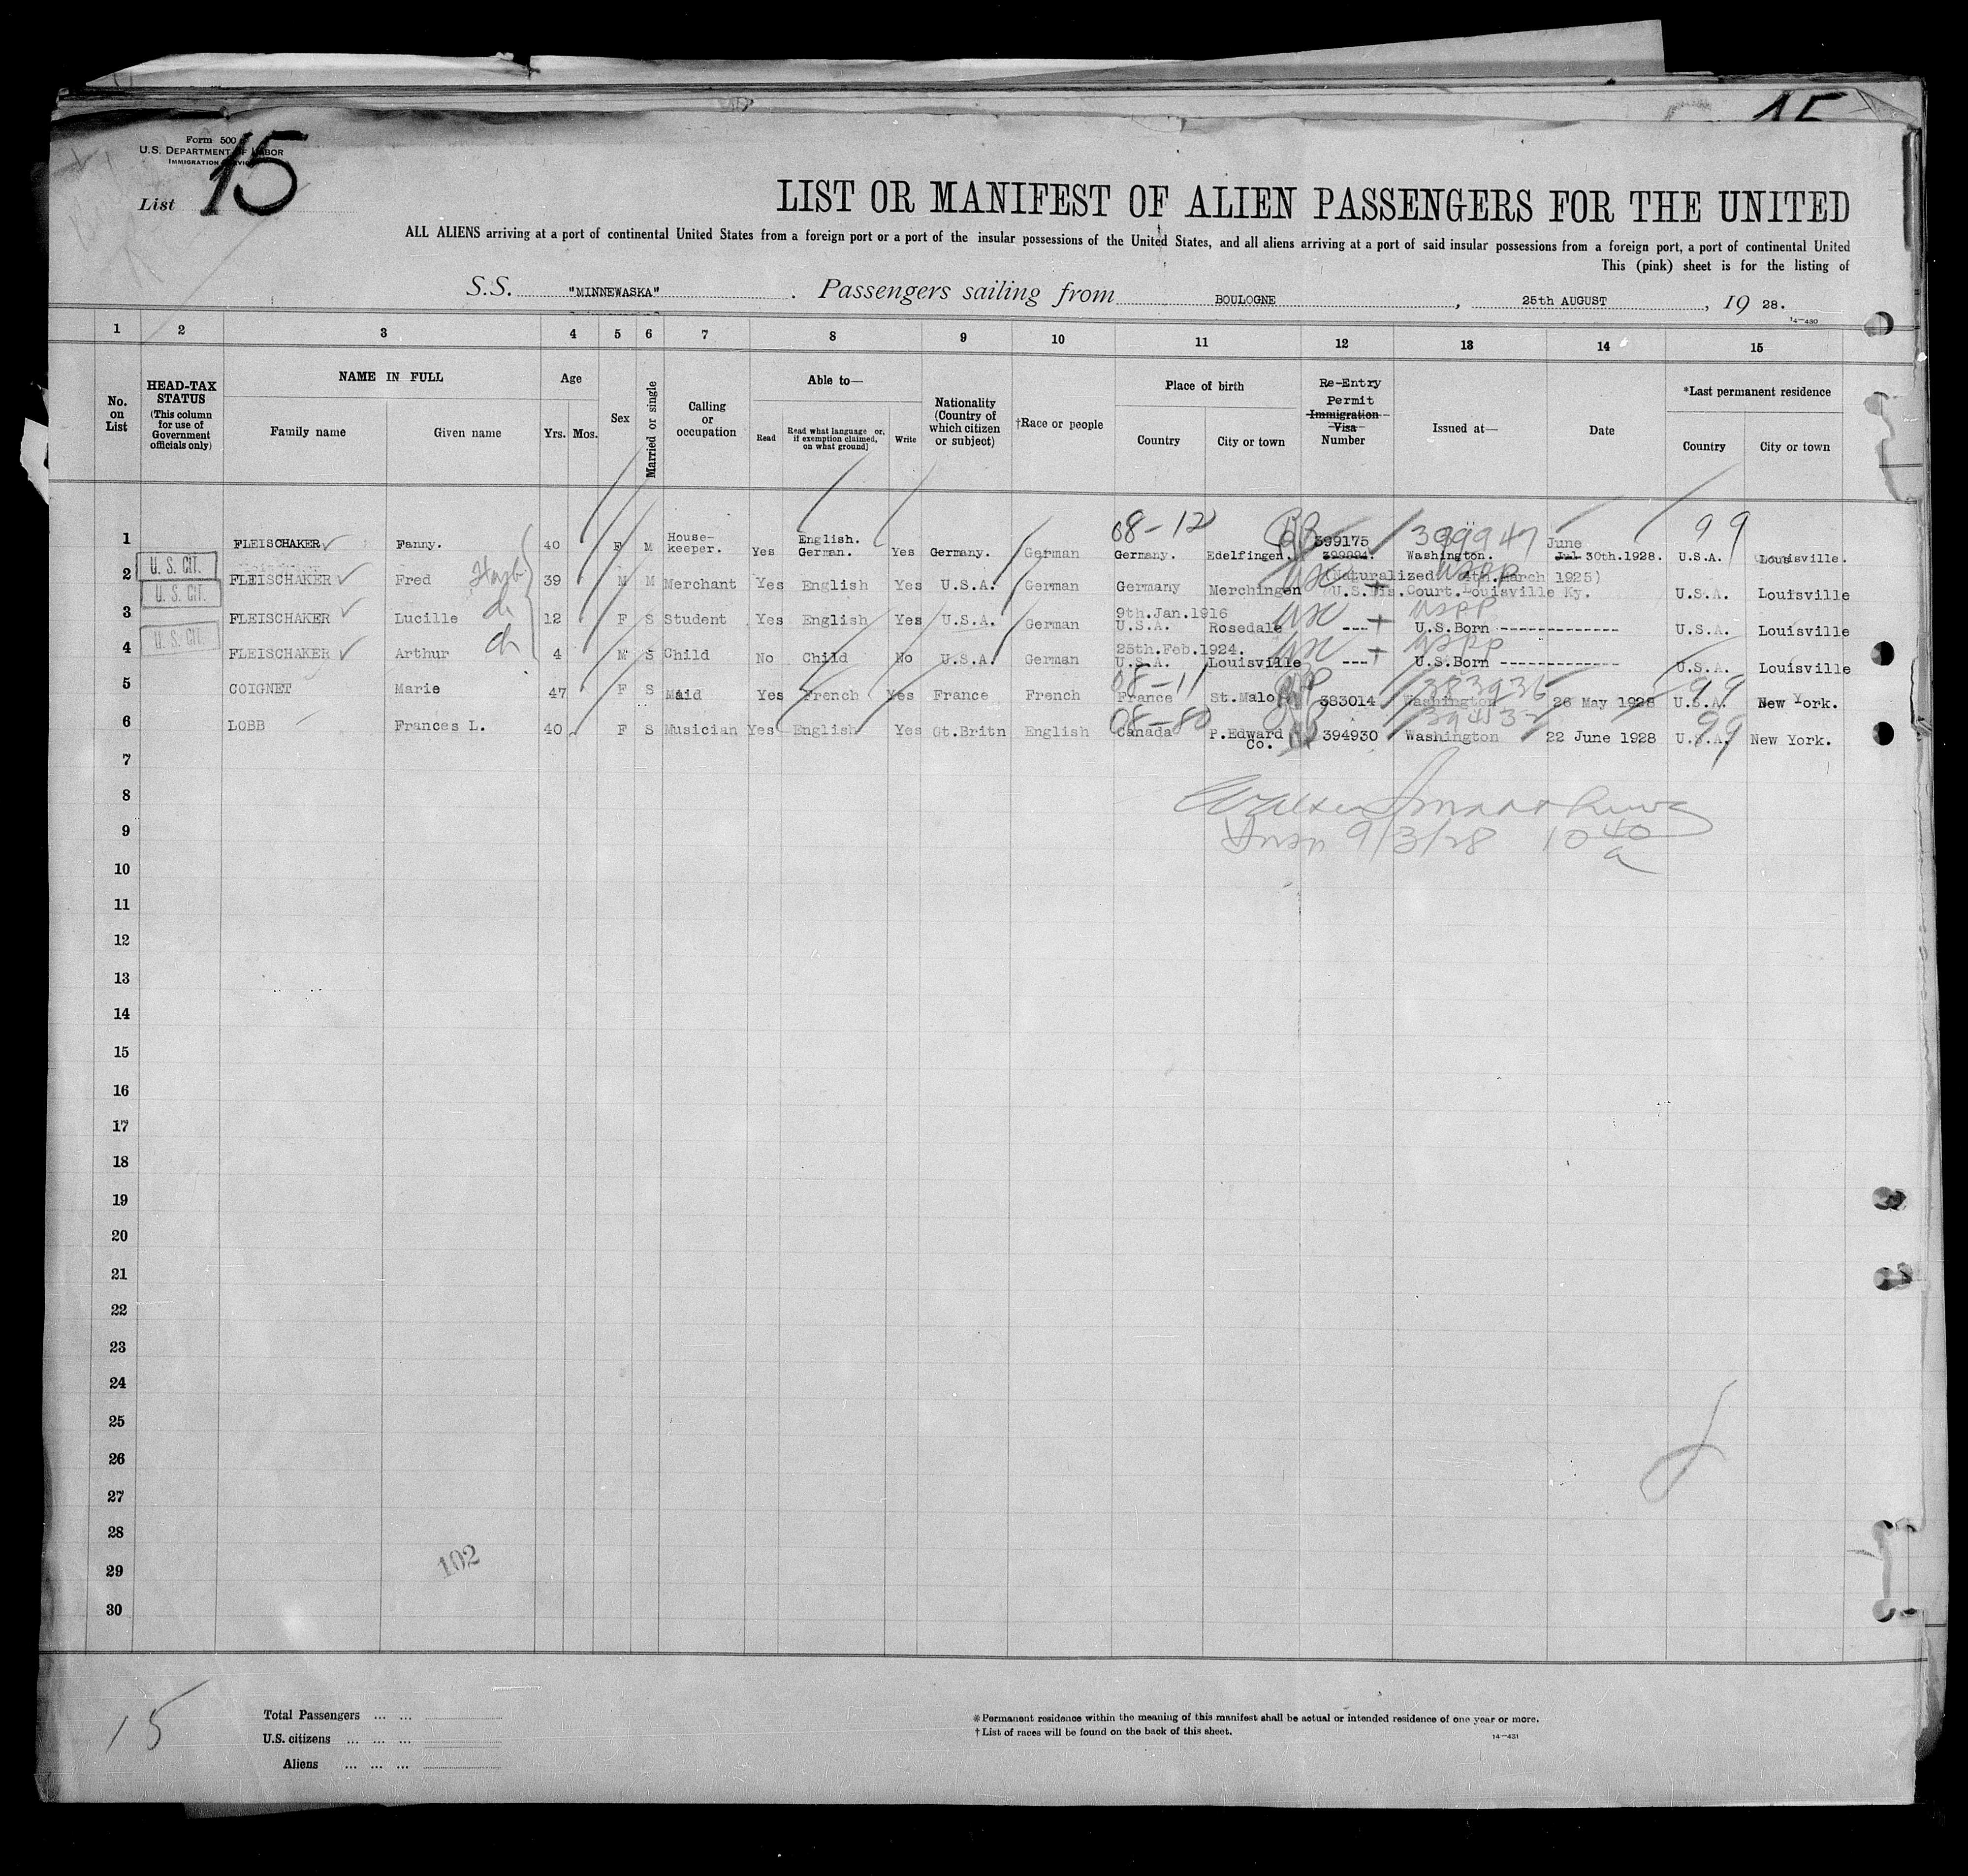 15
Form 500
U.S. DEPARTMENT OF LABOR
IMMIGRATION SERVICE
List 15
LIST OR MANIFEST OF ALIEN PASSENGERS FOR THE UNITED
ALL ALIENS arriving at a port of continental United States from a foreign port or a port of the insular possessions of the United States, and all aliens arriving at a port of said insular possessions from a foreign port, a port of continental United
This (pink) sheet is for the listing of
S.S. "MINNEWASKA". Passengers sailing from BOULOGNE, 25th AUGUST, 19 28.
14-430
1 2 3 4 5 6 7 8 9 10 11 12 13 14 15
No. on List
HEAD-TAX STATUS (This column for use of Government officials only)
NAME IN FULL
Family name Given name
Age
Yrs. Mos.
Sex
Married or single
Calling or occupation
Able to—
Read
Read what language or, if exemption claimed, on what ground]
Write
Nationality (Country of which citizen or subject)
†Race or people
Place of birth
Country City or town
Re-Entry Permit Immigration Visa Number
Issued at—
Date
*Last permanent residence
Country City or town
08-12 399947 99
1 FLEISCHAKER Fanny. 40 F M House-keeper. Yes English. German. Yes Germany. German Germany. Edelfingen. 399175 399894. Washington. June Jul 30th.1928. U.S.A. Louisville.
U. S. CIT.
2 FLEISCHAKER Fred 39 M M Merchant Yes English Yes U.S.A. German Germany Merchingen (naturalized 4th.March 1925) U.S.Dis.Court.Louisville Ky. U.S.A. Louisville
USC USPP
U. S. CIT.
3 FLEISCHAKER Lucille ch 12 F S Student Yes English Yes U.S.A. German 9th.Jan.1916 U.S.A. Rosedale --- U.S.Born ------------- U.S.A. Louisville
USC USPP
U. S. CIT.
4 FLEISCHAKER Arthur ch 4 M S Child No Child No U.S.A. German 25th.Feb.1924. U.S.A. Louisville --- U.S.Born ------------- U.S.A. Louisville
USC USPP
08-11 383936 99
5 COIGNET Marie 47 F S Maid Yes French Yes France French France St.Malo 383014 Washington 26 May 1928 U.S.A. New York.
08-80 99
6 LOBB Frances L. 40 F S Musician Yes English Yes Gt.Britn English Canada P.Edward Co. 394930 Washington 22 June 1928 U.S.A. New York.
7
8
9
9/3/28 10 40 a
10
11
12
13
14
15
16
17
18
19
20
21
22
23
24
25
26
27
28
29
102
30
15
Total Passengers ... ...
U.S. citizens ... ... ...
Aliens ... ... ...
*Permanent residence within the meaning of this manifest shall be actual or intended residence of one year or more.
†List of races will be found on the back of this sheet.
14-431